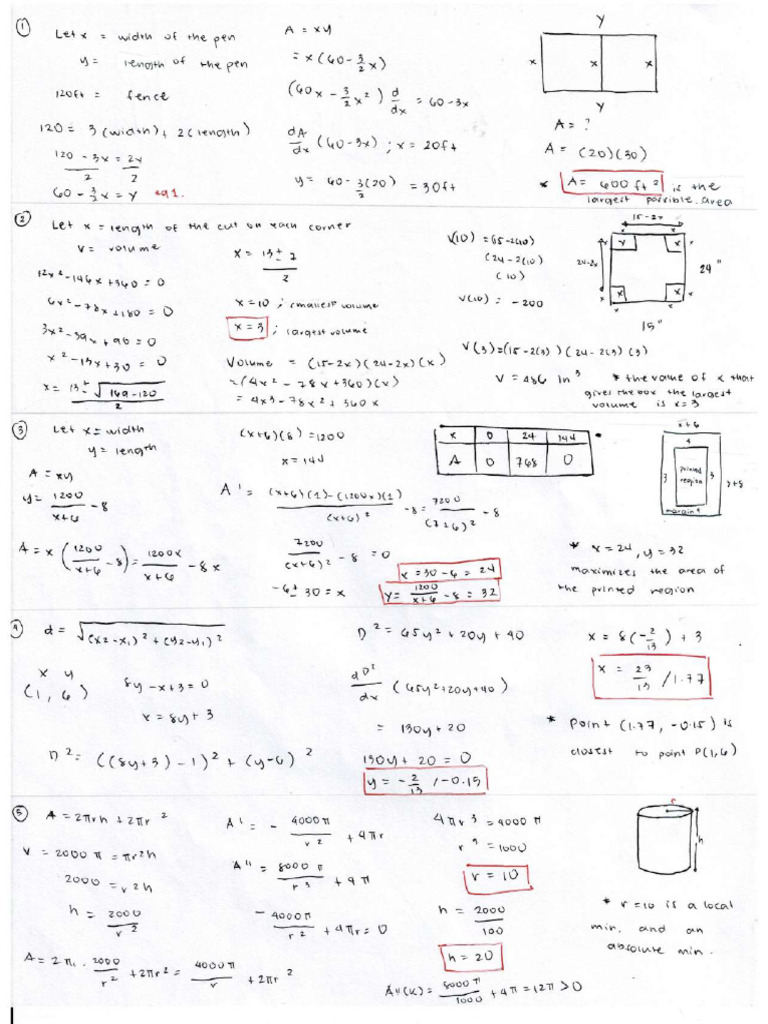 ①
Let x = width of the pen
y = length of the pen
120ft = fence
120 = 3(width) + 2(length)
120 - 3x = 2y
2 2
60 - 3/2 x = y
A = xy
= x(60 - 3/2 x)
(60x - 3/2 x²) d/dx = 60 - 3x
dA/dx (60 - 3x) ; x = 20ft
y = 60 - 3/2 (20) = 30ft
Y
x x x
Y
A = ?
A = (20)(30)
* A = 600 ft² is the
largest possible area
②
Let x = length of the cut on each corner
V = volume
12x² - 146x + 360 = 0
6x² - 78x + 180 = 0
3x² - 39x + 90 = 0
x² - 13x + 30 = 0
x = 13 ± √169 - 120
2
x = 13 ± 7
2
x = 10 ; smallest volume
x = 3 ; largest volume
Volume = (15-2x)(24-2x)(x)
= (4x² - 78x + 360)(x)
= 4x3 - 78x² + 360x
V(10) = (15-2(10)
(24-2(10)
(10)
V(10) = -200
V(3) = (15-2(3))(24-2(3)(3)
V = 486 in³
15-2x
24-2x
x x
x x
24"
15"
* the value of x that
gives the box the largest
volume is x=3
③
Let x = width
y = length
A = xy
y = 1200/x+6 - 8
A = x (1200/x+6 - 8) = 1200x/x+6 - 8x
(x+6)(8) = 1200
x = 144
A' = (x+6)(1)-(1200x)(1)/(x+6)² - 8 = 7200/(x+6)² - 8
7200/(x+6)² - 8 = 0
-6 ± 30 = x
x = 30 - 6 = 24
y = 1200/x+6 - 8 = 32
x 0 24 144
A 0 768 0
x+6
3 printed region 3
y+8
margin 4
* x = 24, y = 32
maximizes the area of
the printed region
④
d = √(x2-x1)² + (y2-y1)²
x y
(1, 6)
8y - x + 3 = 0
x = 8y + 3
D² = ((8y+3) - 1)² + (y-6)²
D² = 65y² + 20y + 40
dD²/dx (65y² + 20y + 40)
= 130y + 20
130y + 20 = 0
y = -2/13 / -0.15
x = 8(-2/13) + 3
x = 23/13 / 1.77
* point (1.77, -0.15) is
closest to point P(1,6)
⑤
A = 2πrh + 2πr²
V = 2000π = πr²h
2000 = r²h
h = 2000/r²
A = 2πr · 2000/r² + 2πr² = 4000π/r + 2πr²
A' = - 4000π/r² + 4πr
A" = 8000π/r³ + 4π
- 4000π/r² + 4πr = 0
4πr³ = 4000π
r³ = 1000
r = 10
h = 2000/100
h = 20
A"(x) = 8000π/1000 + 4π = 12π > 0
r
h
* r = 10 is a local
min. and an
absolute min.